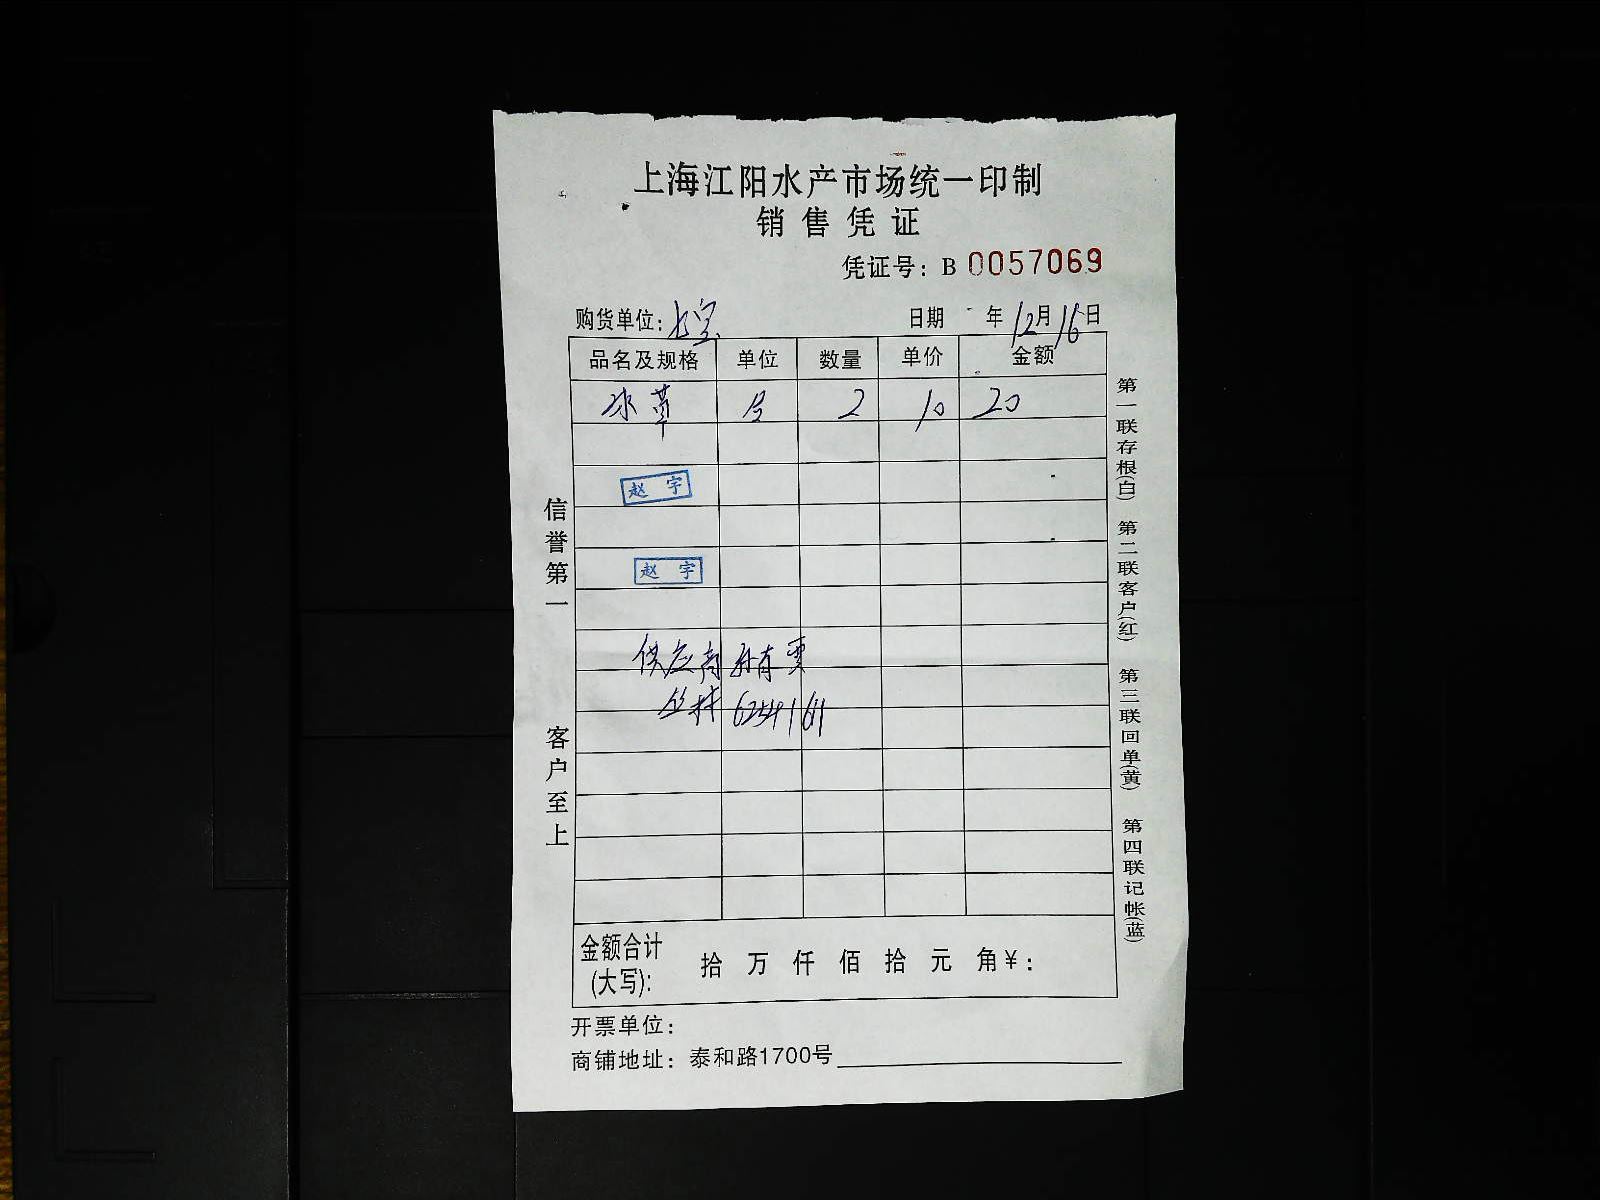 上海江阳水产市场统一印制
销售凭证
凭证号：B 0057069
购货单位：七宝 日期 年12月16日
品名及规格 单位 数量 单价 金额
水草 2 10 20
赵宇
赵宇
供应商 孙有贾
62541611
信誉第一 客户至上
第一联存根(白) 第二联客户(红) 第三联回单(黄) 第四联记帐(蓝)
金额合计(大写): 拾 万 仟 佰 拾 元 角￥：
开票单位：
商铺地址：泰和路1700号